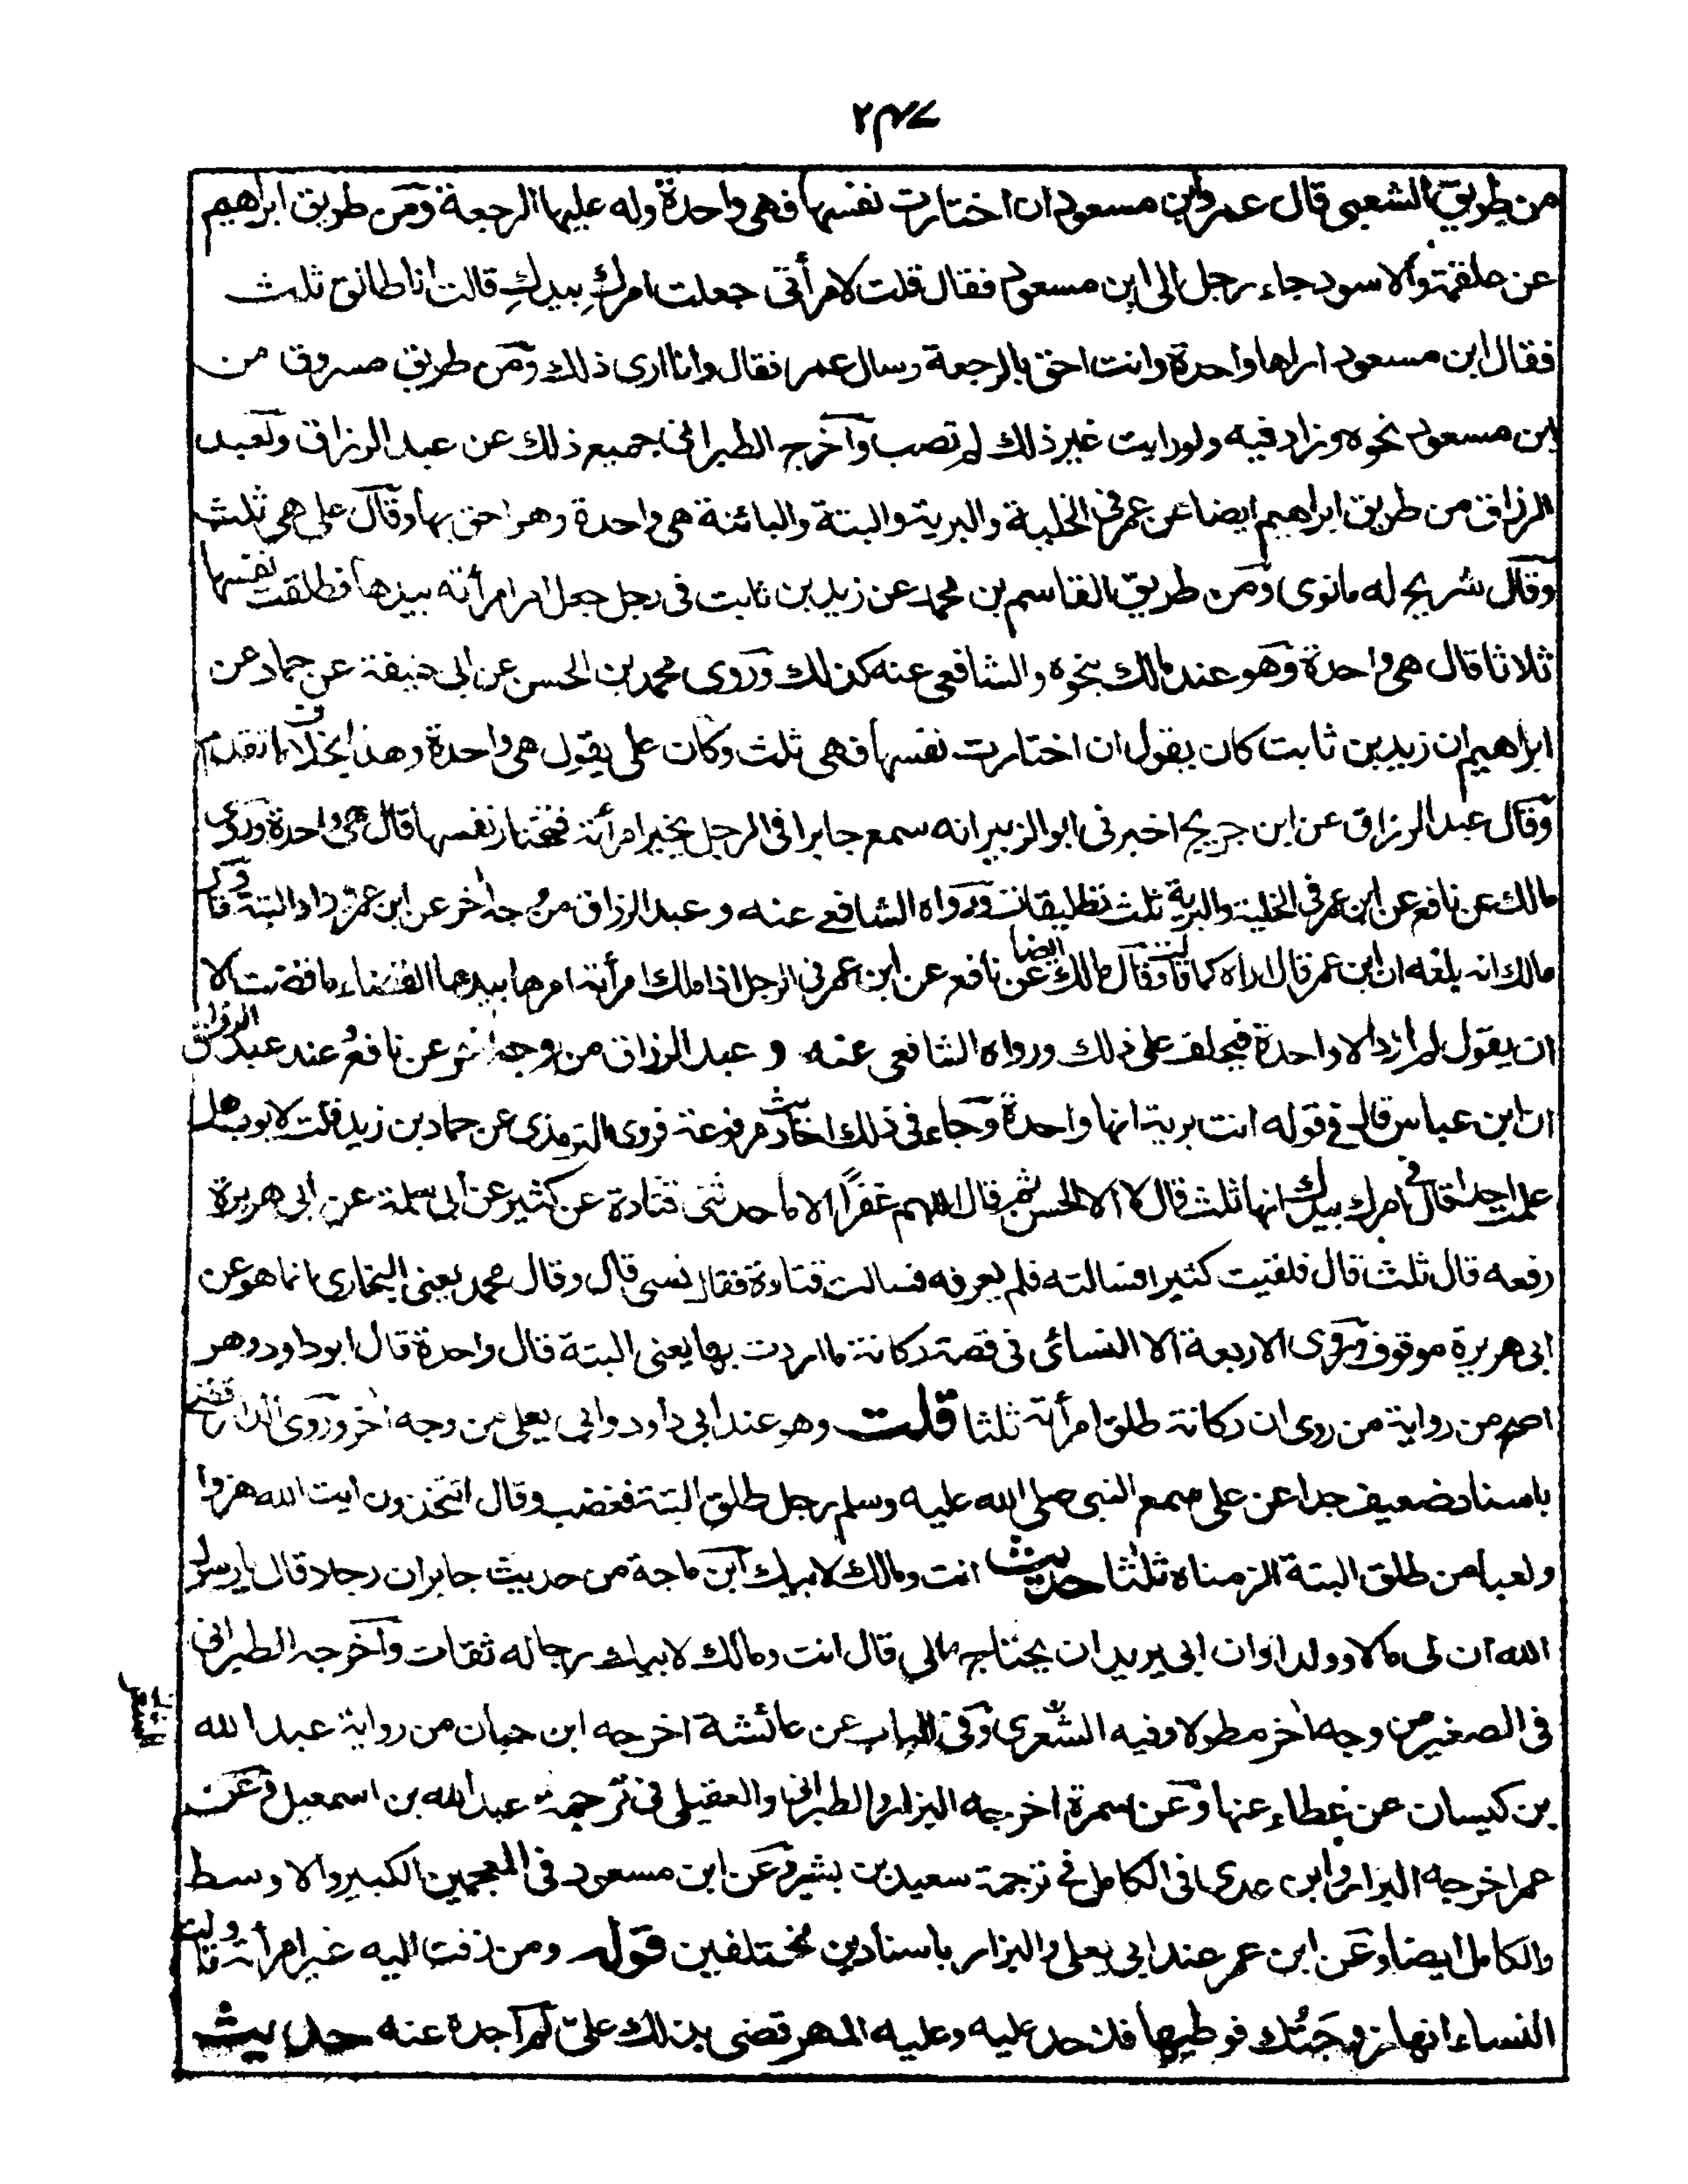 ٢٤٧
من طريق الشعبى قال عمر وابن مسعود ان اختارت نفسها فهى واحدة وله عليها الرجعة ومن طريق ابراهيم
عن علقمة والاسود جاء رجل الى ابن مسعود فقال قلت لامرأتى جعلت امركِ بيدكِ قالت انا طالق ثلث
فقال ابن مسعود اراها واحدة وانت احق بالرجعة وسال عمر فقال وانا ارى ذلك ومن طريق مسروق عن
ابن مسعود نحوه وزاد فيه ولو رايت غير ذلك لم تصب وآخرج الطبرانى جميع ذلك عن عبد الرزاق ولعبد
الرزاق من طريق ابراهيم ايضا عن عمر فى الخلية والبرية والبتة والبائنة هى واحدة وهو احق بها وقال على هى ثلث
وقال شريح له ما نوى ومن طريق القاسم بن محمد عن زيد بن ثابت فى رجل جعل امر امرأته بيدها فطلقت نفسها
ثلاثا قال هى واحدة وهو عند مالك بنحوه والشافعى عنه كذلك وروى محمد بن الحسن عن ابى حنيفة عن حماد عن
ابراهيم ان زيد بن ثابت كان يقول ان اختارت نفسها فهى ثلث وكان على يقول هى واحدة وهذا بخلاف ما تقدم
وقال عبد الرزاق عن ابن جريج اخبرنى ابو الزبير انه سمع جابرا فى الرجل يخير امرأته فتختار نفسها قال هى واحدة وروى
مالك عن نافع عن ابن عمر فى الخلية والبرية ثلث تطليقات ورواه الشافعى عنه و عبد الرزاق من وجه اخر عن ابن عمر وزاد البتة وذكر
مالك انه بلغه ان ابن عمر قال اراه كما قالت وقال مالك ايضا عن نافع عن ابن عمر فى الرجل اذا ملك امرأته امرها بيدها القضاء ما قضت الا
ان يقول لم ارد الا واحدة فيحلف على ذلك ورواه الشافعى عنه و عبد الرزاق من وجه اخر عن نافع وعند عبد الرزاق
ان ابن عباس قال فى قوله انت برية انها واحدة وجاء فى ذلك احاديث مرفوعة فروى الترمذى عن حماد بن زيد قلت لايوب هل
علمت احدا قال فى امرك بيدك انها ثلث قال لا الا الحسن ثم قال اللهم غفرًا الا ما حدثنى قتادة عن كثير عن ابى سلمة عن ابى هريرة
رفعه قال ثلث قال فلقيت كثيرا فسالته فلم يعرفه فسالت قتادة فقال نسى قال وقال محمد يعنى البخارى انما هو عن
ابى هريرة موقوف وروى الاربعة الا النسائى فى قصة ركانة ما اردت بها يعنى البتة قال واحدة قال ابو داود وهو
اصح من رواية من روى ان ركانة طلق امرأته ثلثا قلت وهو عند ابى داود وابى يعلى من وجه اخر وروى الدارقطنى
باسناد ضعيف جدا عن على سمع النبى صلى الله عليه وسلم رجل طلق البتة فغضب وقال اتتخذون ايت الله هزوا
ولعبا من طلق البتة الزمناه ثلثا حديث انت ومالك لابيك ابن ماجة من حديث جابر ان رجلا قال يا رسول
الله ان لى مالا وولدا وان ابى يريد ان يحتاج مالى قال انت ومالك لابيك رجاله ثقات وآخرجه الطبرانى
فى الصغير من وجه اخر مطولا وفيه الشعرى وفى الباب عن عائشة اخرجه ابن حبان من رواية عبد الله
بن كيسان عن عطاء عنها وعن سمرة اخرجه البزار والطبرانى والعقيلى فى ترجمة عبد الله بن اسمعيل وعن
عمر اخرجه البزار وابن عدى فى الكامل فى ترجمة سعيد بن بشير وعن ابن مسعود فى المعجمين الكبير والاوسط
والكامل ايضا وعن ابن عمر عند ابى يعلى والبزار باسنادين مختلفين قوله ومن زفت اليه غير امرأته وقالت
النساء انها زوجتك فوطيها فلا حد عليه وعليه المهر قضى بذلك على لم اجدة عنه حديث